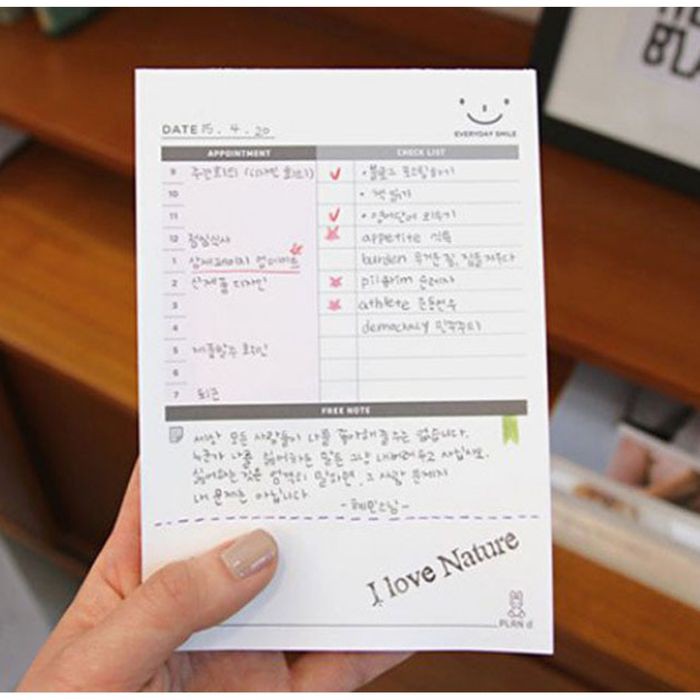 EVERYDAY SMILE
DATE 15. 4. 20
APPOINTMENT
CHECK LIST
9 주간회의 (디자인 회의)
• 블로그 포스팅하기
10
• 책 읽기
11
• 영어단어 외우기
12 점심식사
appetite 식욕
1 상세페이지 업데이트
burden 무거운 짐, 짐을 지우다
2 신제품 디자인
pilgrim 순례자
3
athlete 운동선수
4
democracy 민주주의
5 제품발주 확인
6
7 퇴근
FREE NOTE
세상 모든 사람들이 나를 좋아해줄 수는 없습니다.
누군가 나를 싫어하는 말든 그냥 내버려 두고 사십시오.
싫어하는 것은 엄격히 말하면, 그 사람 문제지
내 문제는 아닙니다
-혜민스님-
I love Nature
PLAN d